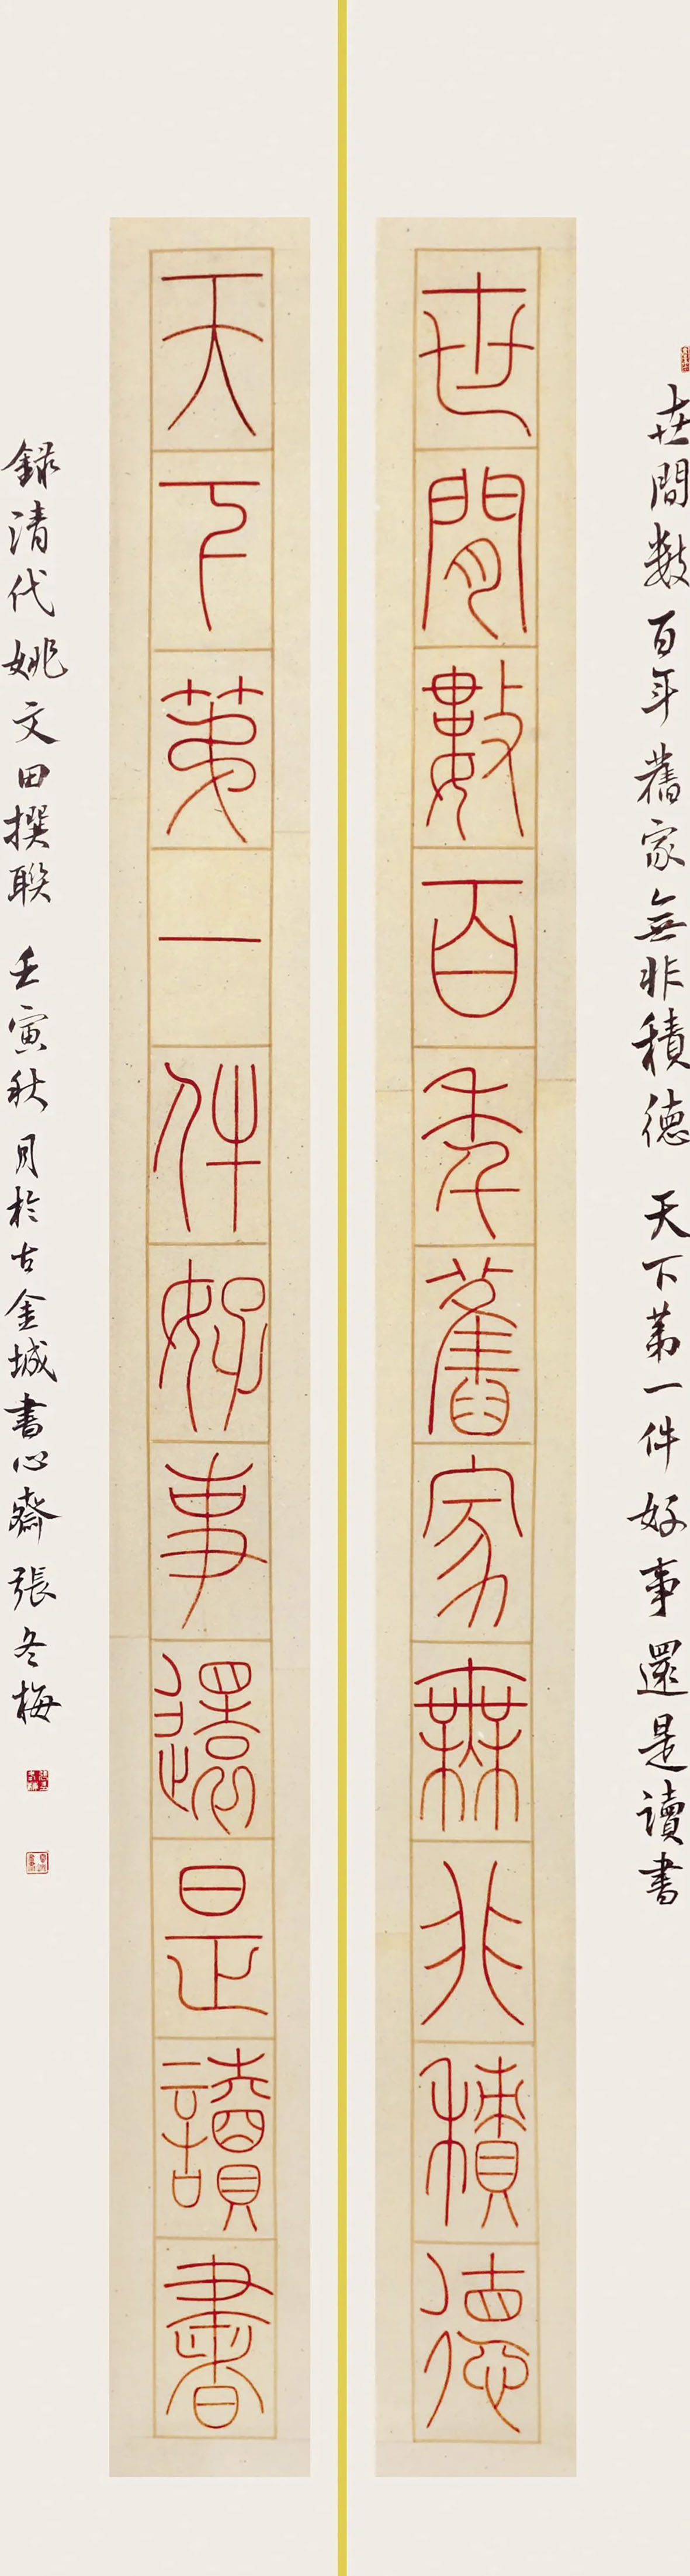 世間數百年舊家無非積德 天下第一件好事還是讀書
世間數百年舊家無非積德
天下第一件好事還是讀書
錄清代姚文田撰聯 壬寅秋月於古金城書心齋 張冬梅